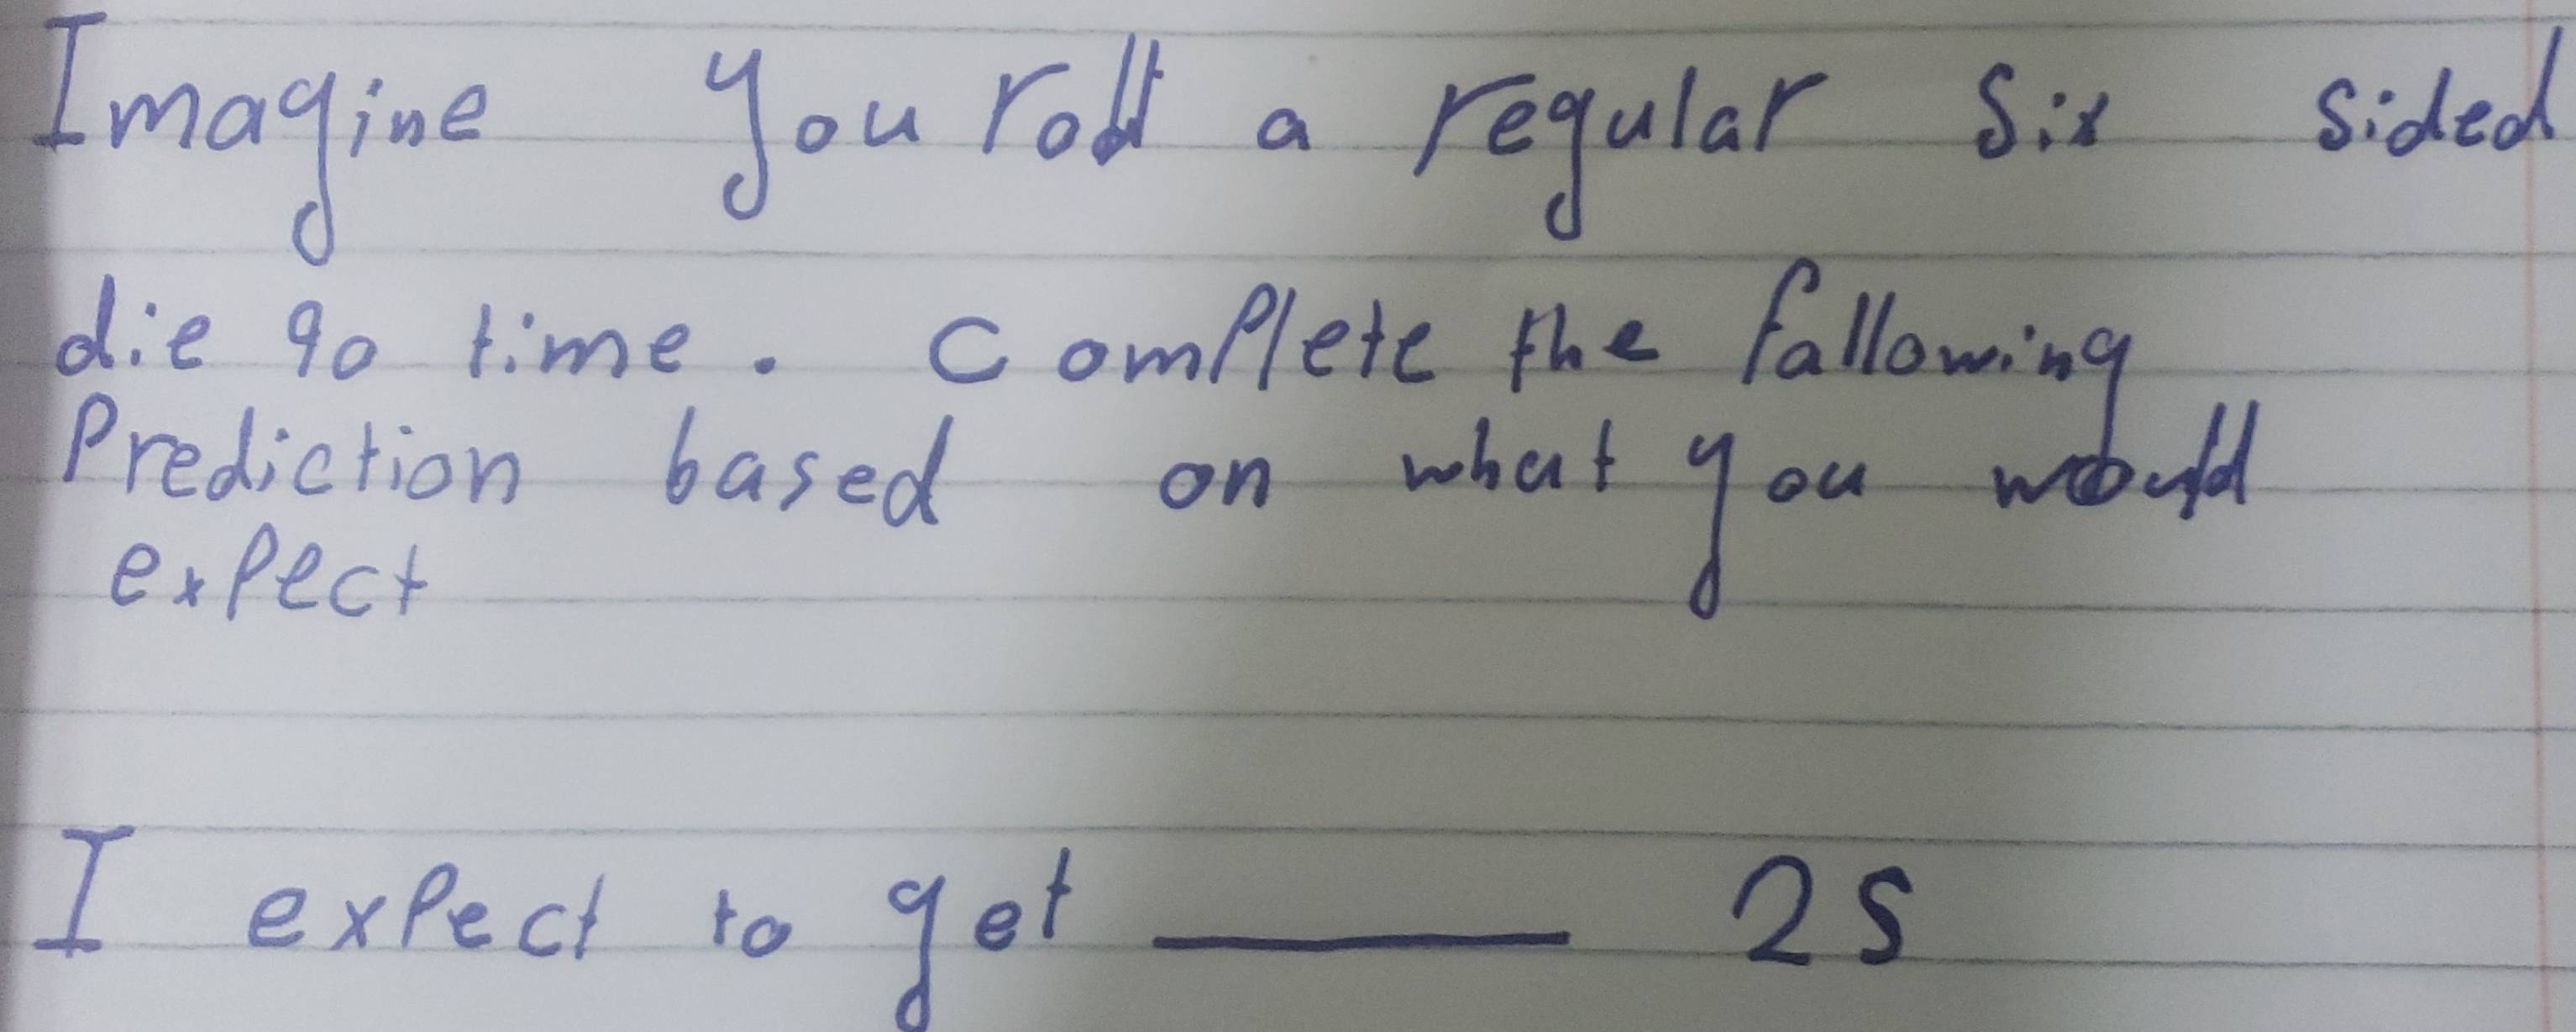 Imagine you roll a regular six sided
die 90 time. complete the fallowing
Prediction based on what you would
expect
I expect to get ____ 2s